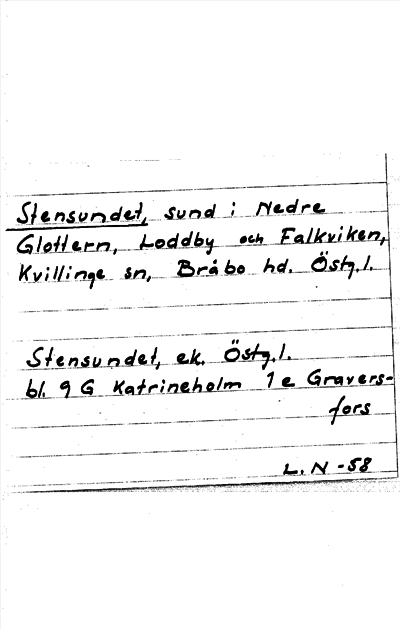 Stensundet, sund i Nedre
Glottern, Loddby och Falkviken,
Kvillinge sn, Bråbo hd. Östg.l.
Stensundet, ek. Östg.l.
bl. 9 G Katrineholm 1 e Gravers-
fors
L. N -58